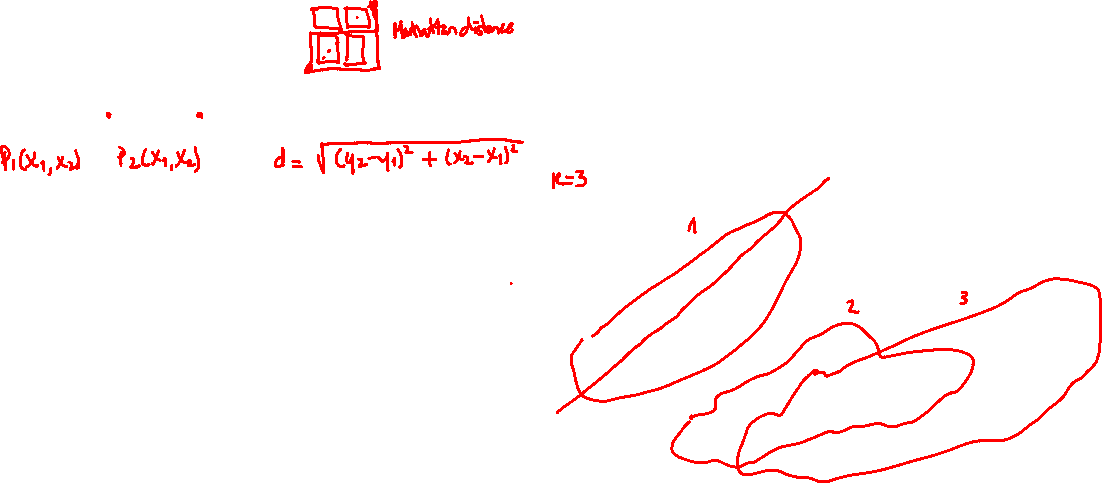 Manhattan distance
P₁(x₁,x₂) P₂(x₁,x₂) d = √(y₂-y₁)² + (x₂-x₁)²
K=3
1
2
3